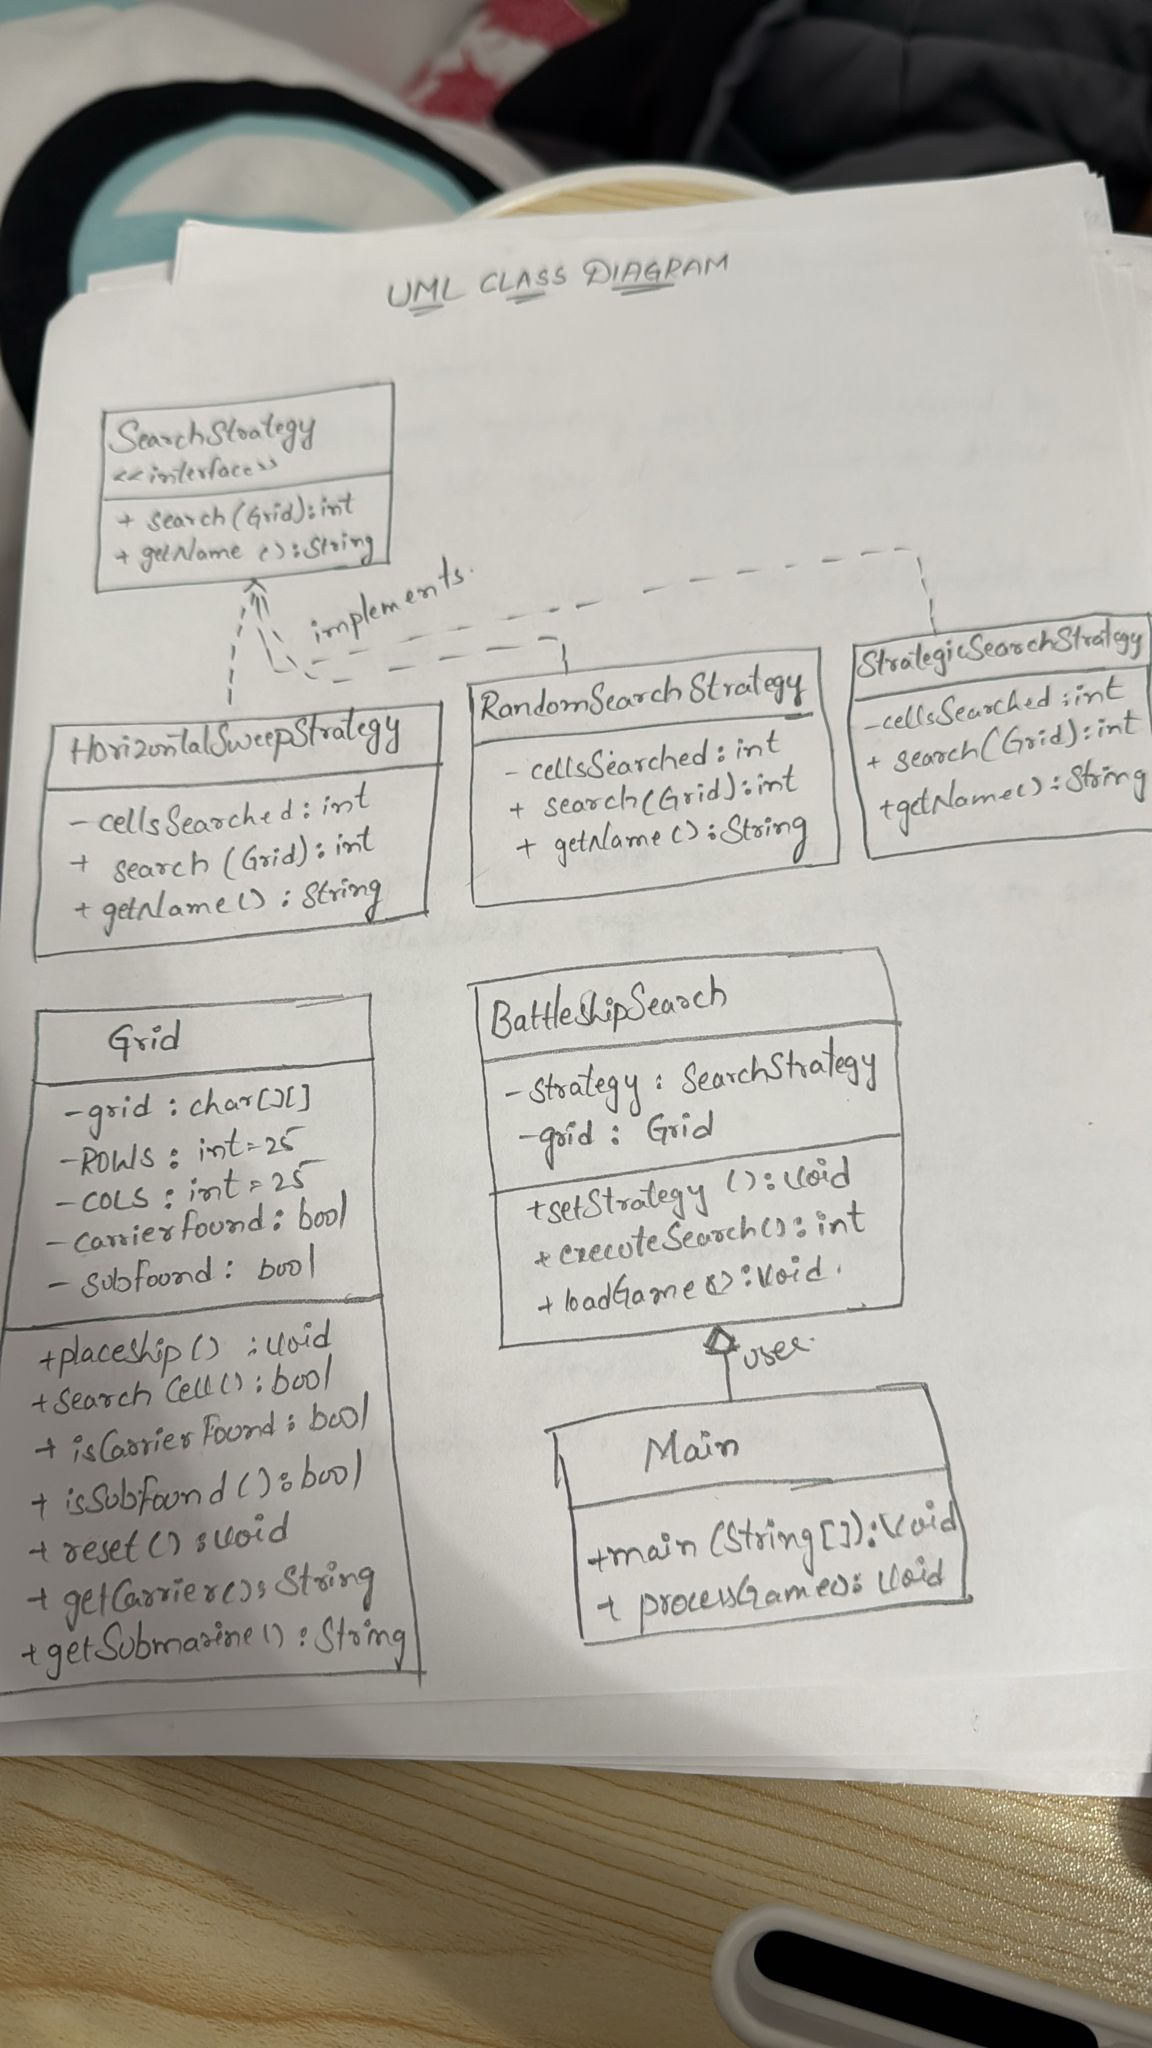 UML CLASS DIAGRAM
SearchStrategy
<<interface>>
+ search(Grid): int
+ getName (): String
implements.
HorizontalSweepStrategy
- cellsSearched: int
+ search (Grid): int
+ getName(): String
RandomSearchStrategy
- cellsSearched: int
+ search(Grid): int
+ getName(): String
StrategicSearchStrategy
- cellsSearched: int
+ search(Grid): int
+ getName(): String
Grid
- grid : char[][]
- ROWS : int = 25
- COLS : int = 25
- carrierfound : bool
- subfound : bool
+ placeship() : void
+ search Cell() : bool
+ isCarrier Found : bool
+ isSubfound() : bool
+ reset() : void
+ getCarrier(): String
+ getSubmarine() : String
BattleshipSearch
- strategy : SearchStrategy
- grid : Grid
+ setStrategy (): void
+ executeSearch(): int
+ loadGame(): void.
uses
Main
+ main (String[]): void
+ processGame(): void